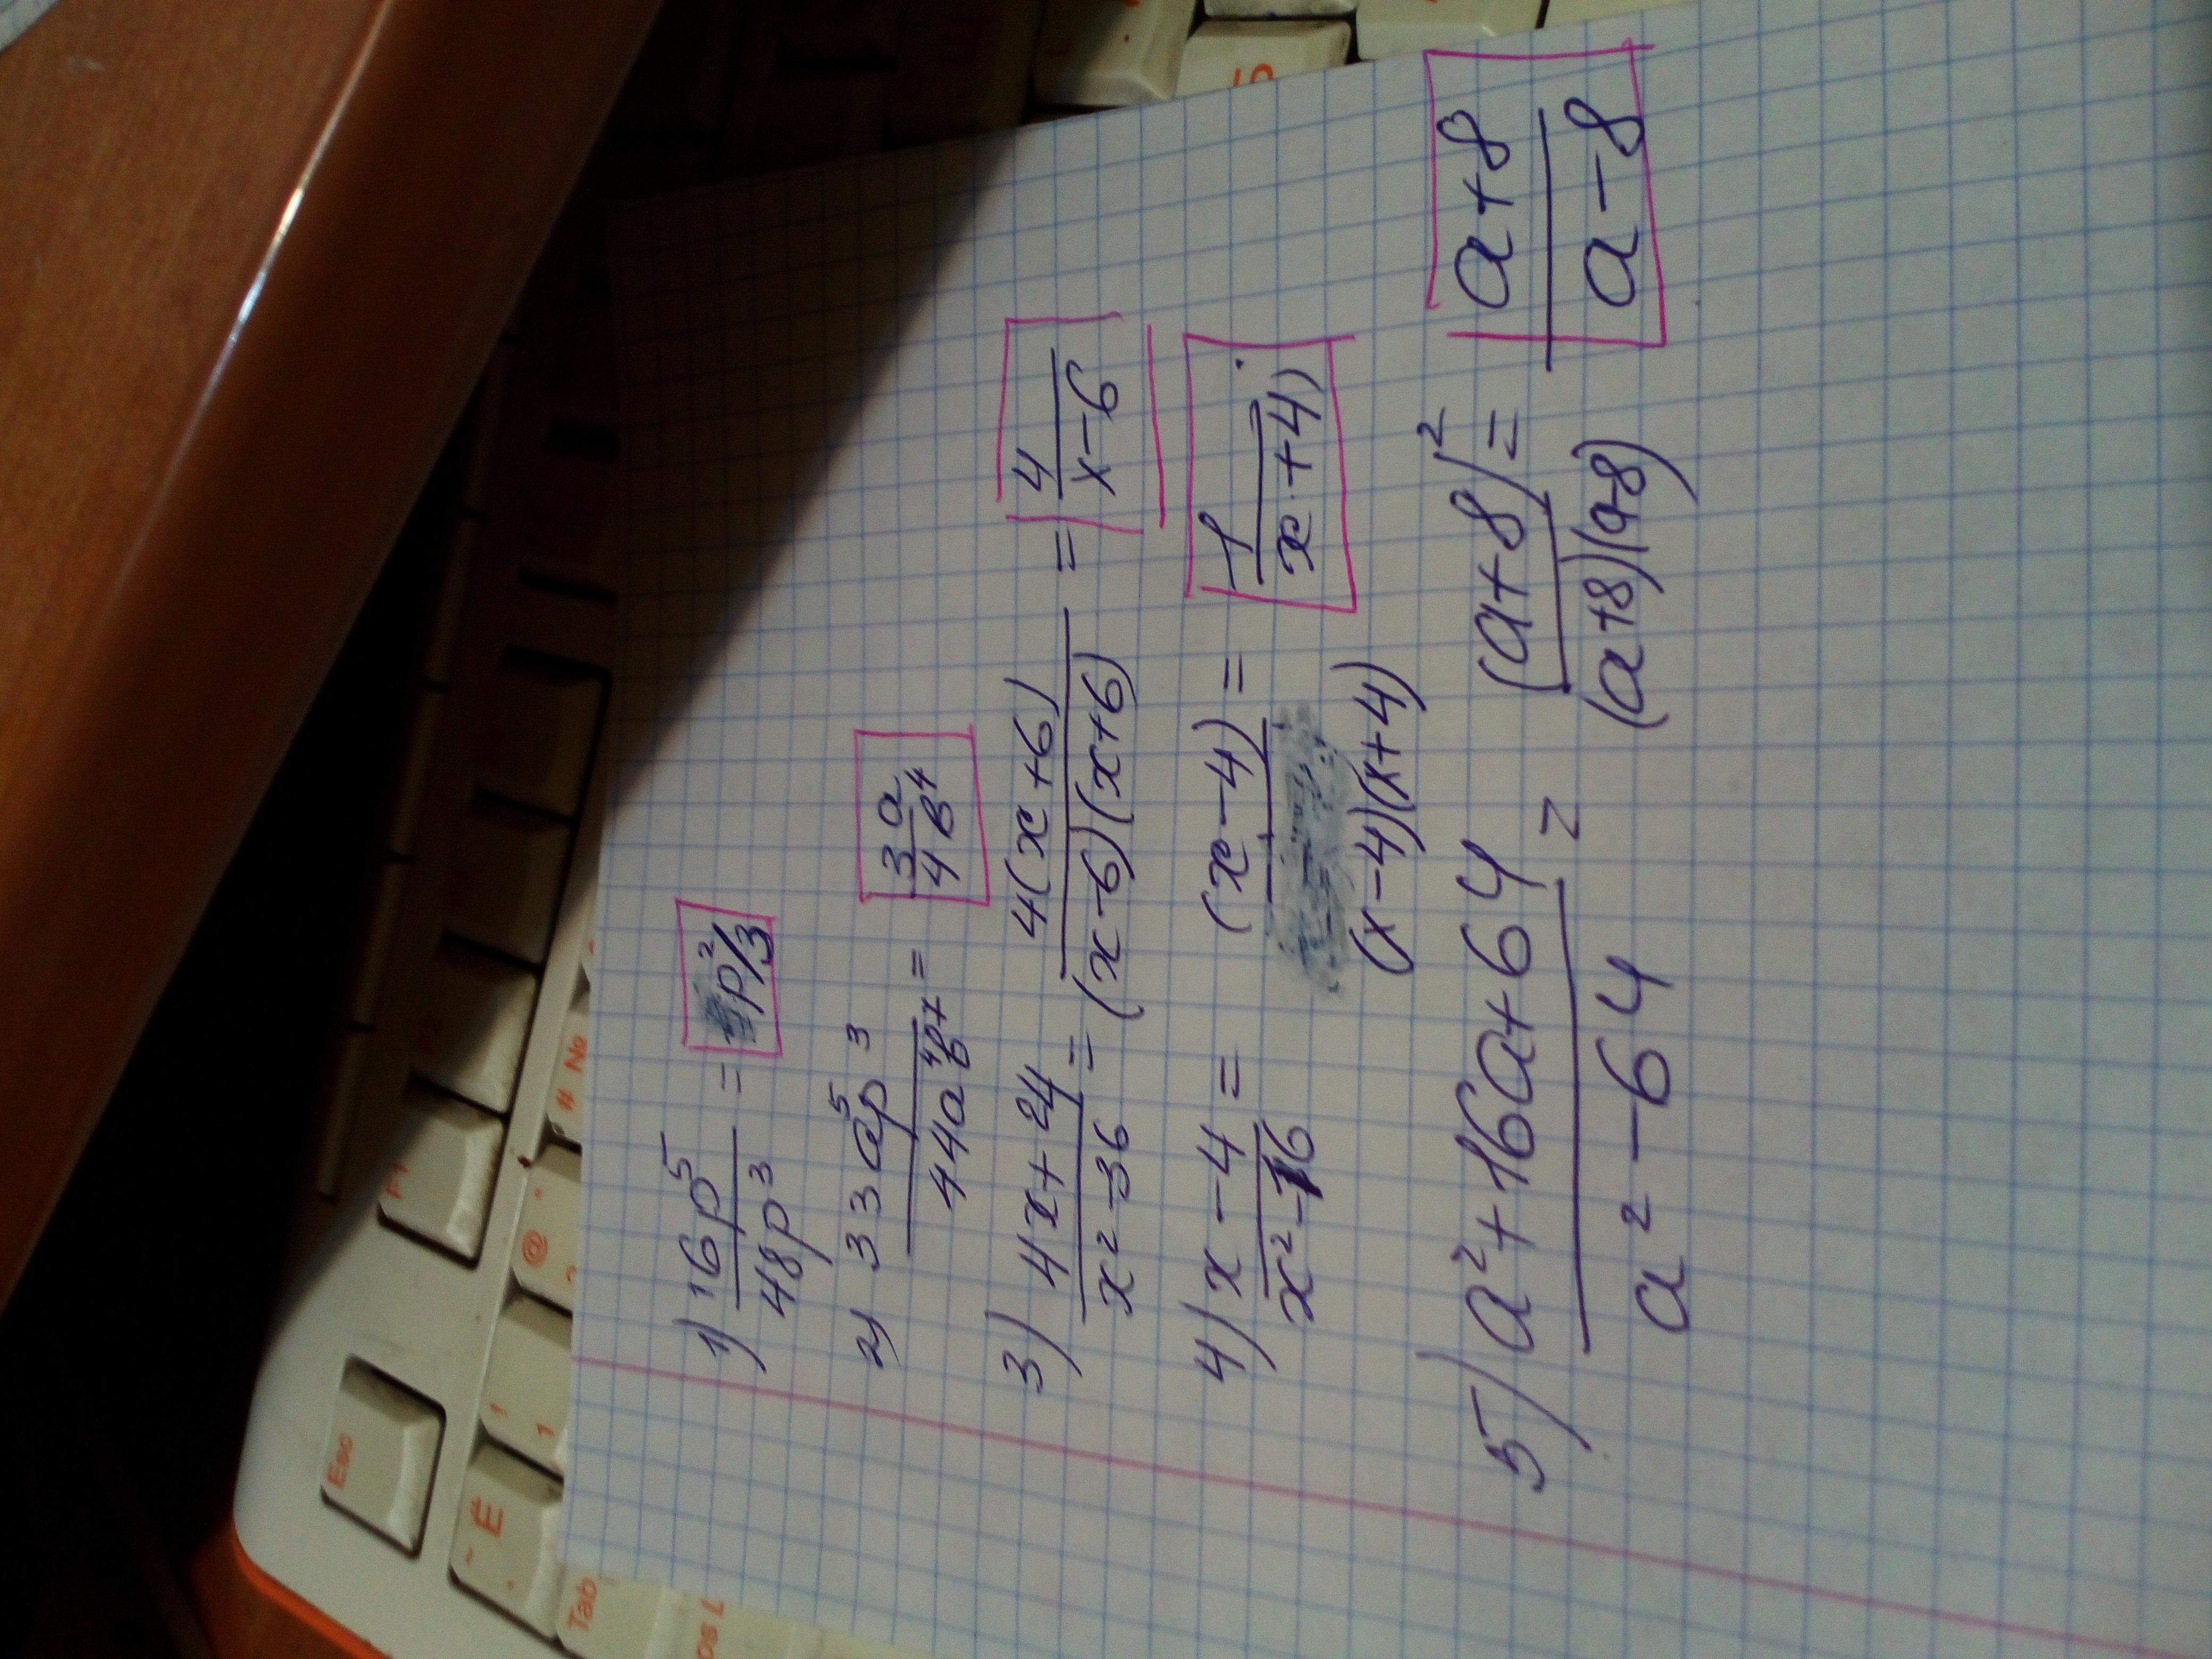 1) 16p⁵/48p³ = p²/3
2) 33a⁵p³/44a⁴b⁷ = 3a/4b⁴
3) 4x+24/x²-36 = 4(x+6)/(x-6)(x+6) = 4/x-6
4) x-4/x²-16 = (x-4)/(x-4)(x+4) = 1/x+4)
5) a²+16a+64/a²-64 = (a+8)²/(a+8)(a-8) = a+8/a-8
Esc
F1
Ё
1
1
@
2
#
№
Tab
ps L
5